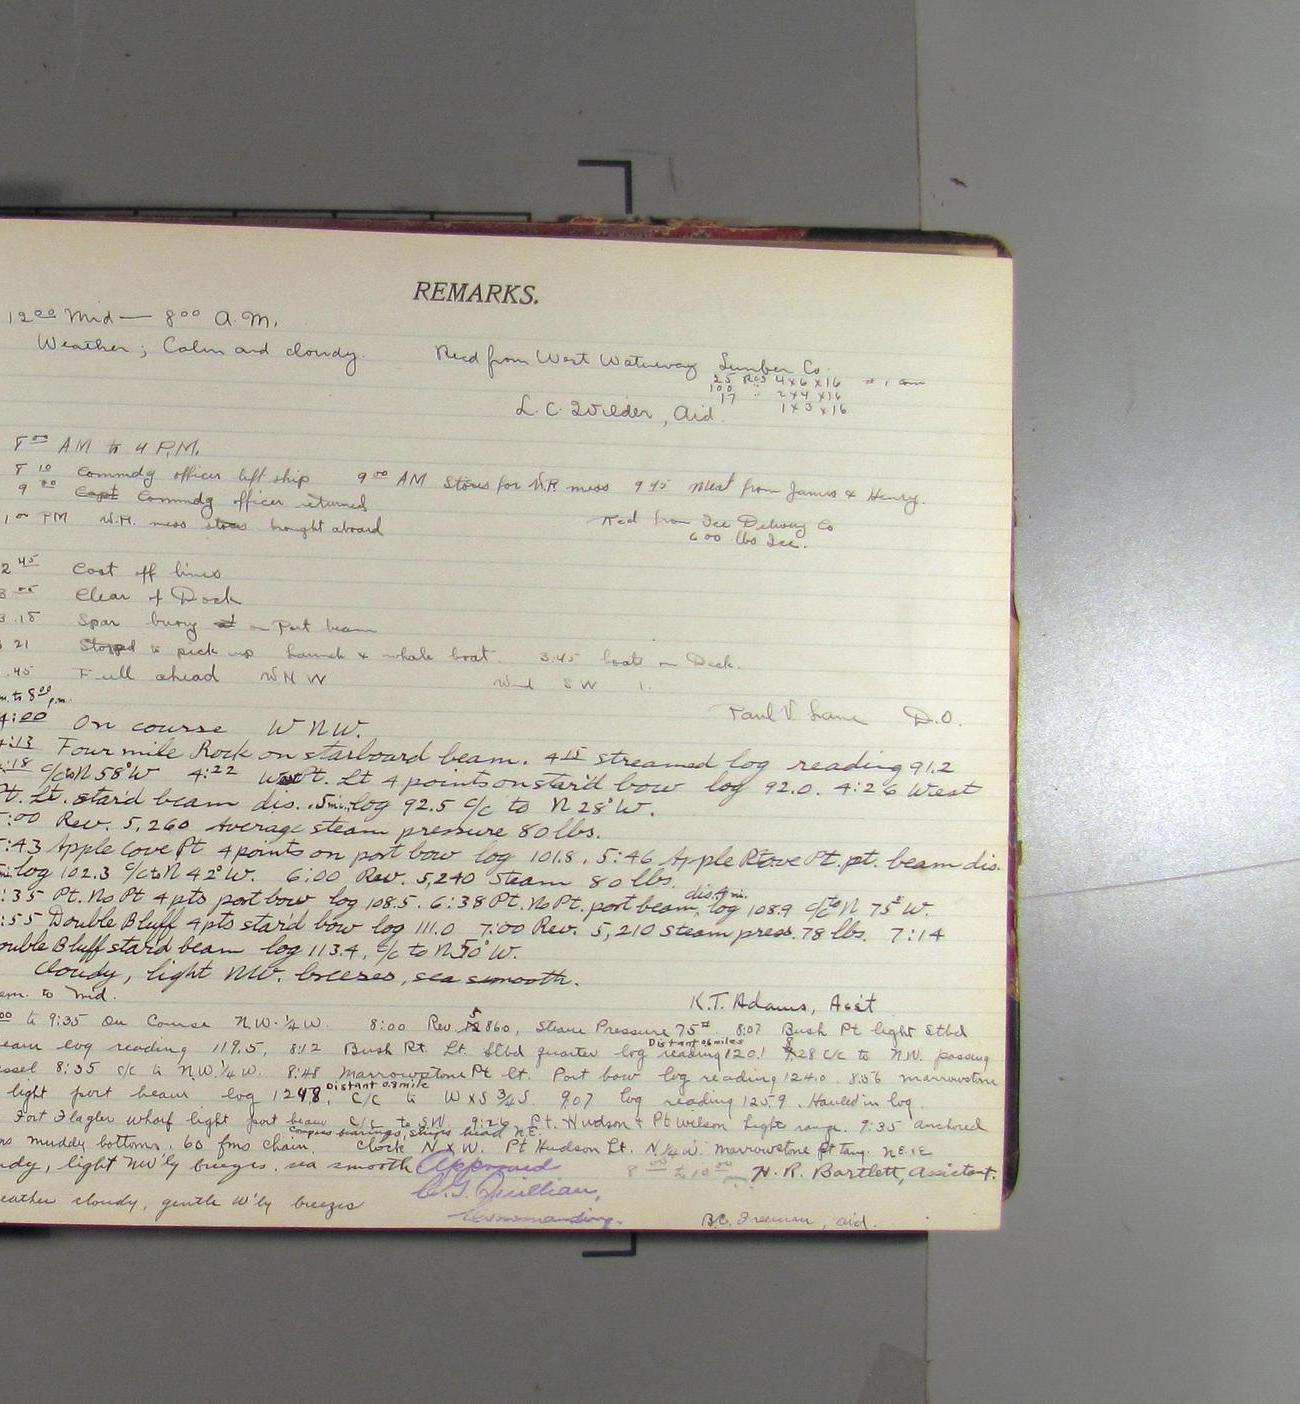 REMARKS.
12⁰⁰ Mid — 8⁰⁰ A.M.
Weather; Calm and cloudy. Recd from West Waterway Lumber Co.
25 Pcs 4x6x16
100 " 2x4x16
17 " 1x3x16
L. C. Wilder, Aid.
8⁰⁰ AM to 4 P.M.
8¹⁰ Commdg officer left ship 9⁰⁰ AM Stores for W.R. mess 9⁴⁵ Meat from James & Henry.
9⁰⁰ Capt Commdg officer returned
1⁰⁰ PM W.R. mess stores brought aboard Recd from Ice Delivery Co
600 lbs Ice.
2⁴⁵ Cast off lines
Clear of Dock
3.15 Spar buoy on Port beam
21 Stopped to pick up launch & whale boat. 3:45 boats on Deck.
.45 Full ahead WNW Wind SW 1.
m. to 8⁰⁰ p.m.
Paul V. Lane D.O.
4:00 On course WNW.
4:13 Four mile Rock on starboard beam. 4¹⁵ streamed log reading 91.2
:18 c/c to N 58°W 4:22 West Pt. Lt 4 points on star'd bow log 92.0. 4:26 West
Pt. Lt. star'd beam dis. .5 mi., log 92.5 c/c to N 28°W.
:00 Rev. 5,260 Average steam pressure 80 lbs.
:43 Apple Cove Pt 4 points on port bow log 101.8. 5:46 Apple Cove Pt. pt. beam dis.
mi. log 102.3 c/c to N 42°W. 6:00 Rev. 5,240 Steam 80 lbs.
:35 Pt. No Pt 4 pts port bow log 108.5. 6:38 Pt. No Pt. port beam, dis. .4 mi. log 108.9 c/c to N 75°W.
:55 Double Bluff 4 pts star'd bow log 111.0 7:00 Rev. 5,210 Steam press. 78 lbs. 7:14
ouble Bluff star'd beam log 113.4, c/c to N 50°W.
Cloudy, light NW. breezes, sea smooth.
K.T. Adams, Asst
pm. to Mid.
00 to 9:35 On Course N.W. ¼ W. 8:00 Rev. 5860, Steam Pressure 75#. 8:07 Bush Pt light Stbd
eam log reading 119.5, 8:12 Bush Pt. Lt. Stbd quarter log reading 120.1 Distant 0.6 miles 8:28 c/c to N.W. passing
ssel 8:35 c/c to N.W. ¼ W. 8:48 Marrowstone Pt Lt. Port bow log reading 124.0. 8:56 Marrowstone
light port beam log 124.8, Distant 0.8 mile c/c to WxS ¾ S. 9:07 log reading 125.9. Hauled in log.
Fort Flagler wharf light port beam c/c to S.W. 9:26 Pt. Hudson & Pt Wilson light range. 9:35 anchored
ms muddy bottom, 60 fms chain. Compass bearings, ships head N.E. Clock N x W. Pt Hudson Lt. N. ¼ W. Marrowstone Pt Tang. NE.¼E
udy, light NW'ly breezes, sea smooth Approved 8⁰⁰ to 10⁰⁰ H. R. Bartlett, Assistant.
C. G. Quillian,
eather cloudy, gentle W'ly breezes
Commanding.
B.C. Freeman, aid.